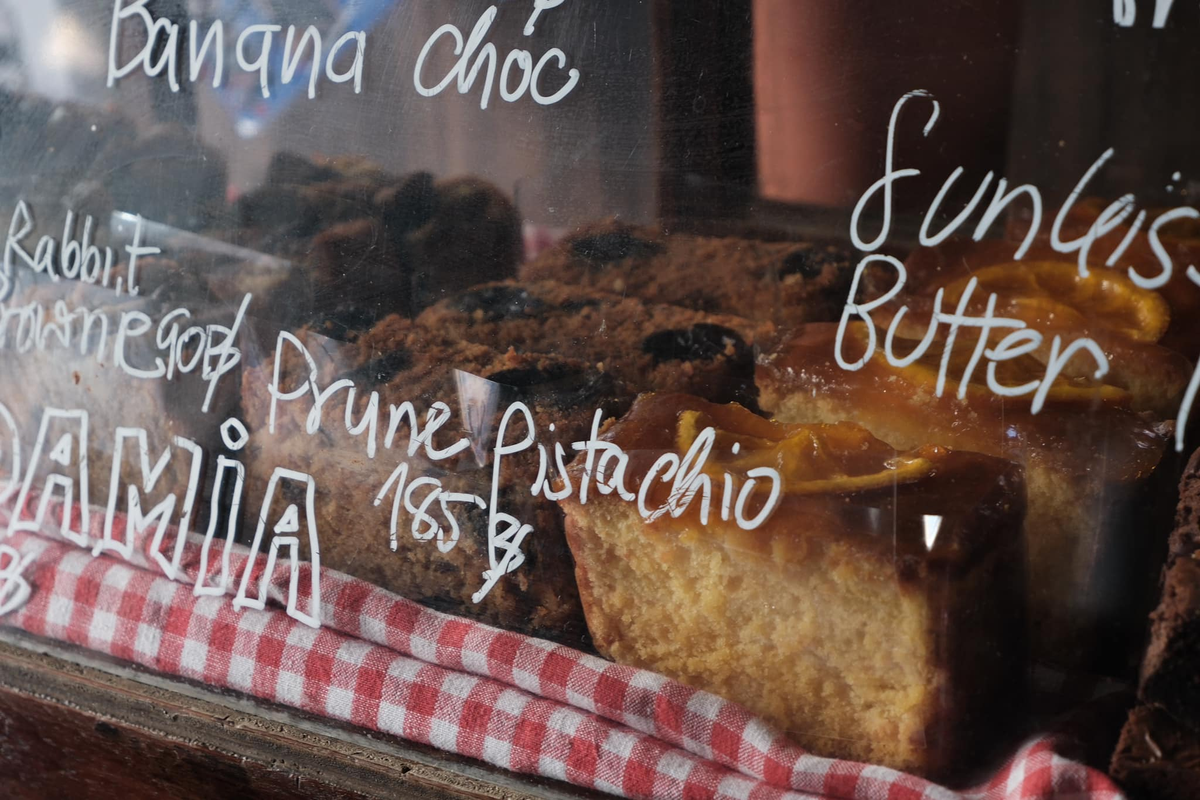 Banana choc
Sunkis
Butter
Rabbit
Brownie 90฿
Prune
Pistachio
185฿
DAMiA
฿